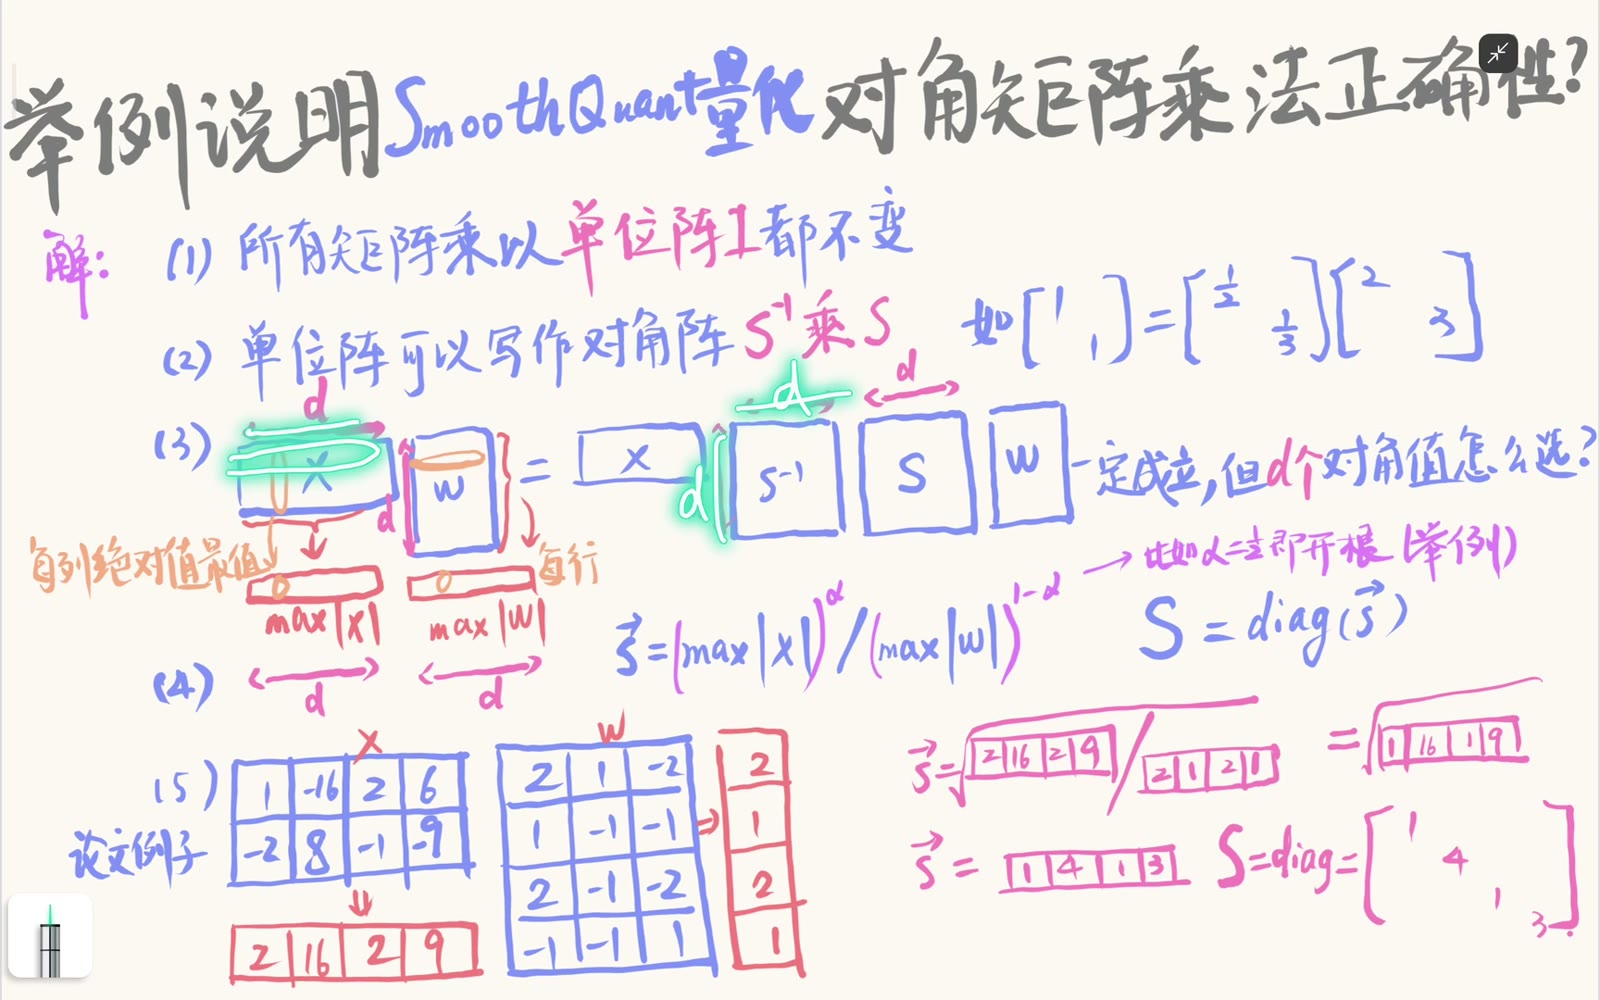 举例说明SmoothQuant量化对角矩阵乘法正确性?
解: (1) 所有矩阵乘以单位阵I都不变
(2) 单位阵可以写作对角阵 S⁻¹乘S 如[1 1]=[1/2 1/3][2 3]
d d d
(3) X d W = X d S⁻¹ S W 一定成立,但d个对角值怎么选?
每列绝对值最值 每行
max|X| max|W|
→比如α=½即开根(举例)
(4) d d s⃗=(max|X|)^α/(max|W|)^1-α S=diag(s⃗)
(5) 论文例子
X
1 -16 2 6
-2 8 -1 -9
⇓
2 16 2 9
W
2 1 -2 2
1 -1 -1 ⇒ 1
2 -1 -2 2
-1 -1 1 1
s⃗=√ 2 16 2 9 / 2 1 2 1 =√ 1 16 1 9
s⃗= 1 4 1 3 S=diag=[1 4 1 3]